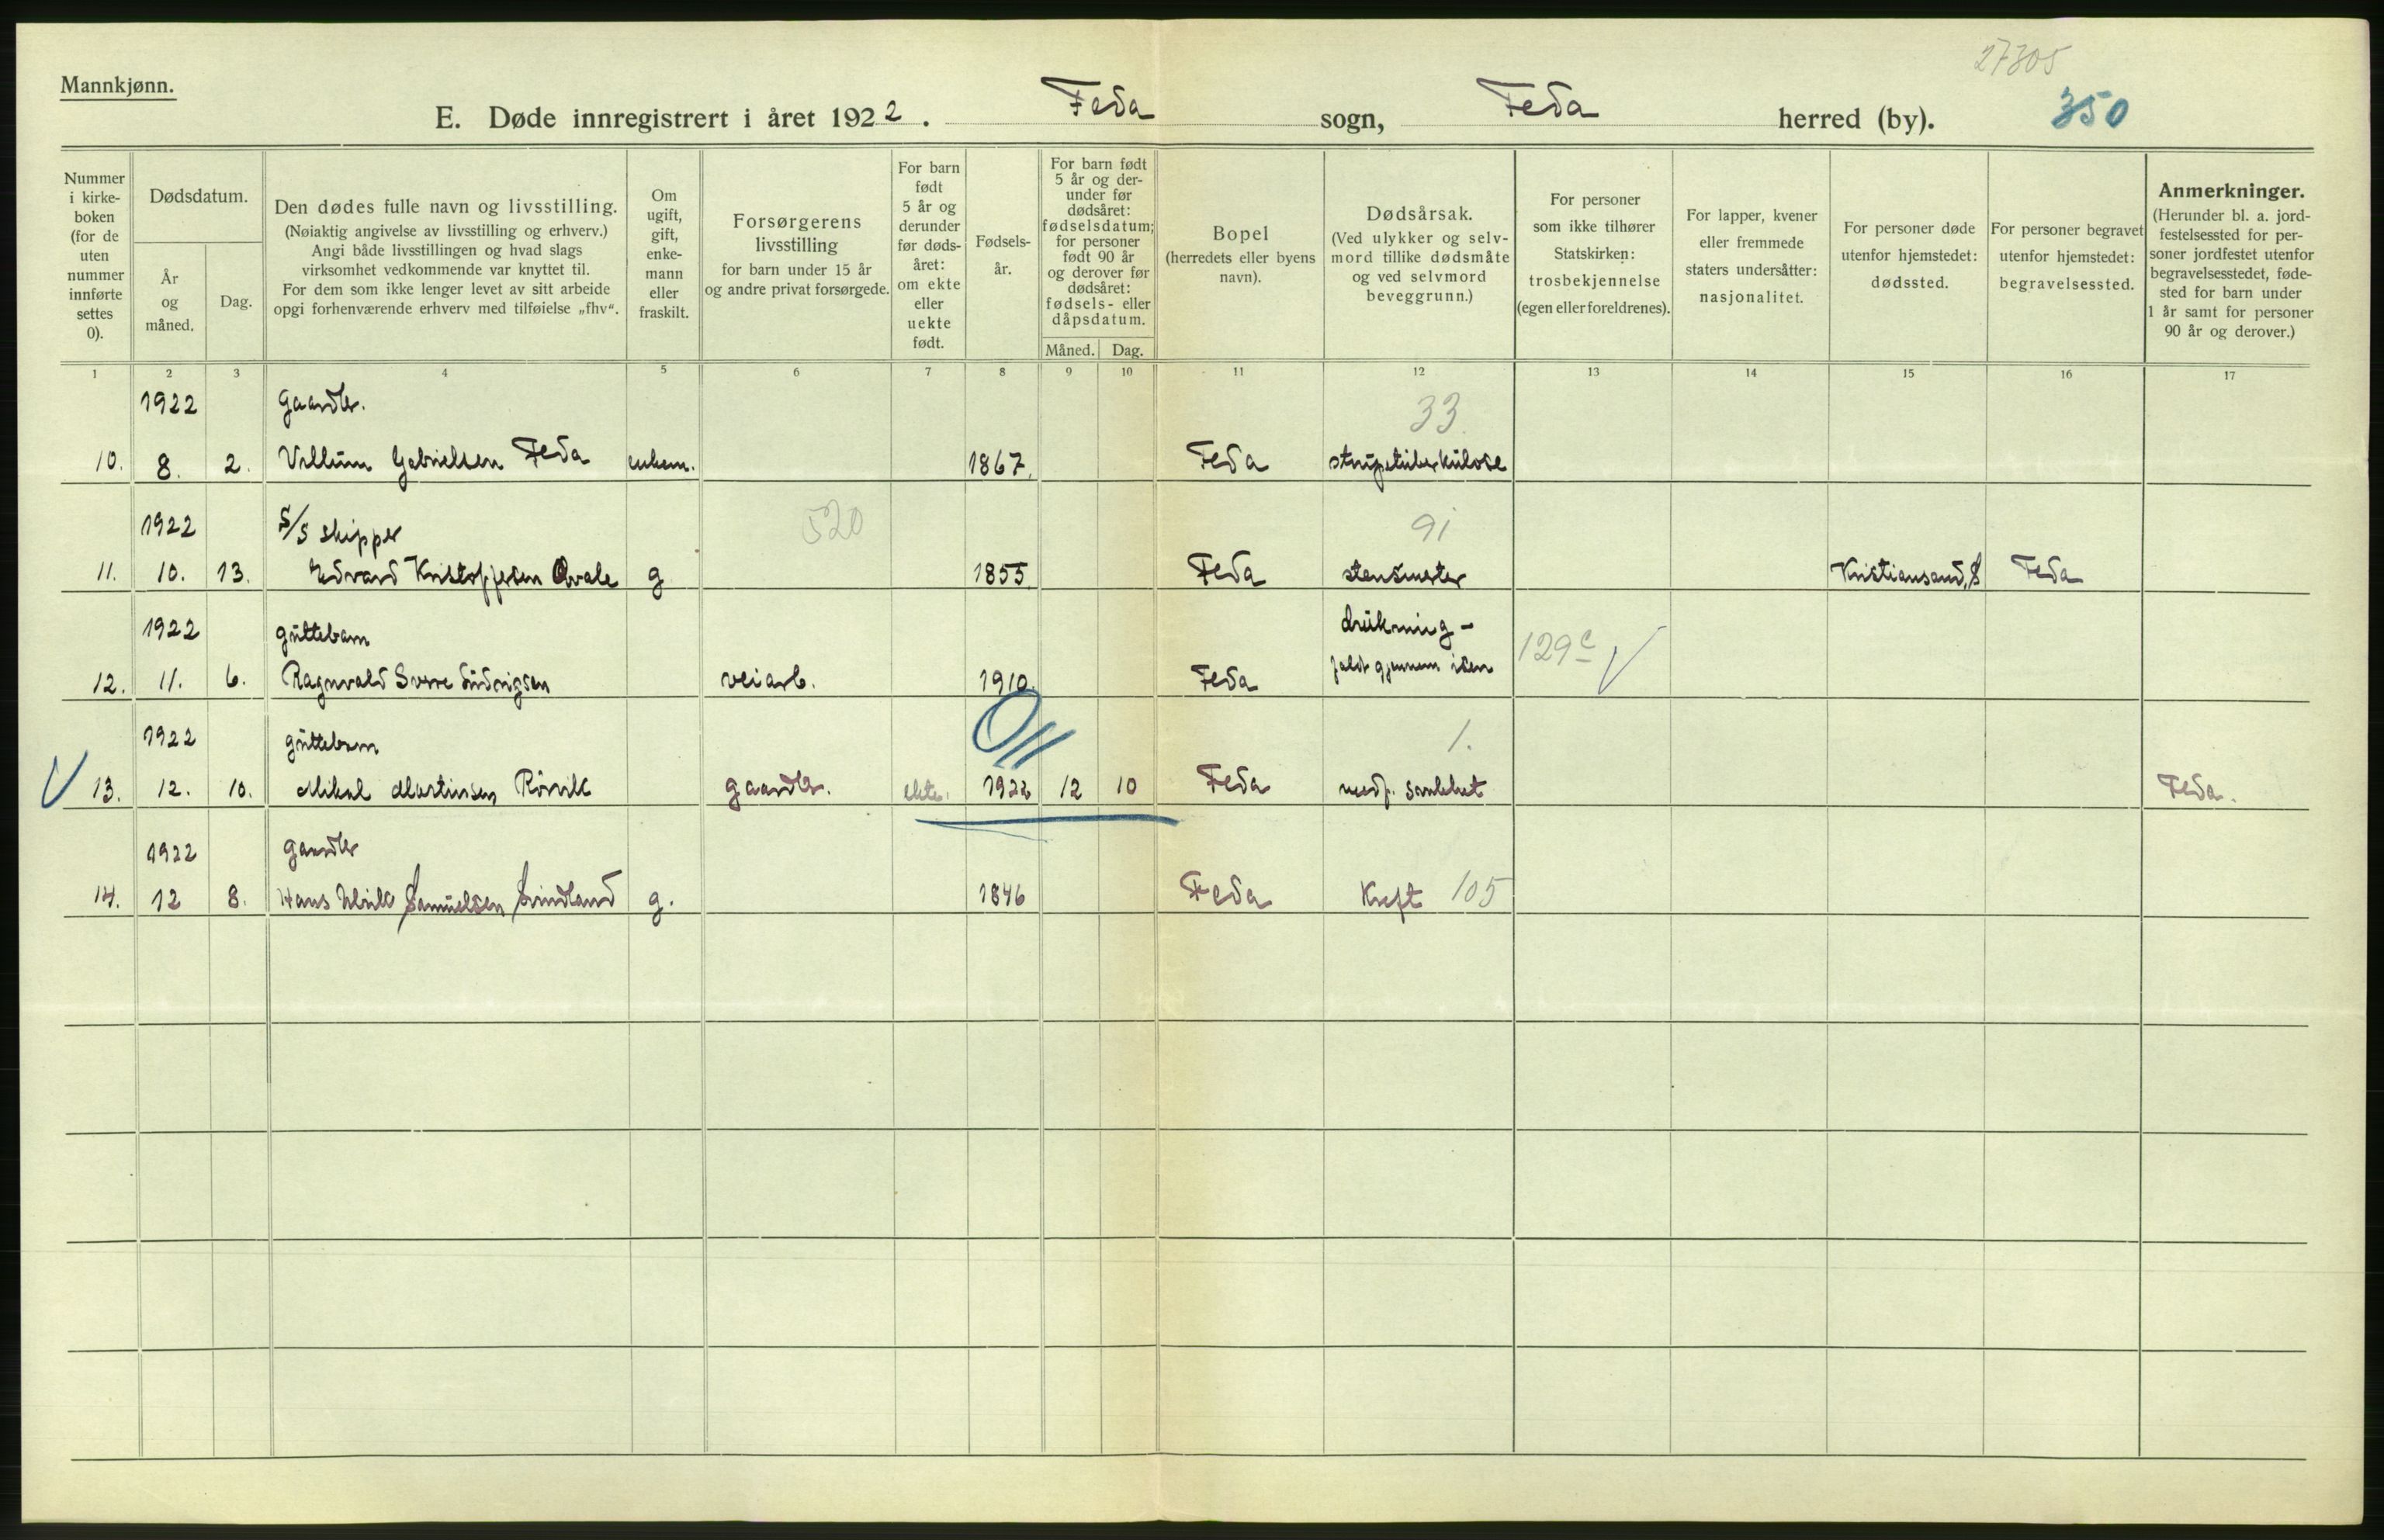 27305
Mannkjønn.
E. Døde innregistrert i året 1922. Feda sogn, Feda herred (by). 350
Nummer i kirke- boken (for de uten nummer innførte settes 0).
Dødsdatum.
År og måned.
Dag.
Den dødes fulle navn og livsstilling.
(Nøiaktig angivelse av livsstilling og erhverv.)
Angi både livsstillingen og hvad slags
virksomhet vedkommende var knyttet til.
For dem som ikke lenger levet av sitt arbeide
opgi forhenværende erhverv med tilføielse „fhv“.
Om ugift, gift, enke- mann eller fraskilt.
Forsørgerens livsstilling
for barn under 15 år
og andre privat forsørgede.
For barn født 5 år og derunder før døds- året: om ekte eller uekte født.
Fødsels- år.
For barn født 5 år og der- under før dødsåret: fødselsdatum; for personer født 90 år og derover før dødsåret: fødsels- eller dåpsdatum.
Måned. Dag.
Bopel
(herredets eller byens navn).
Dødsårsak.
(Ved ulykker og selv- mord tillike dødsmåte og ved selvmord beveggrunn.)
For personer som ikke tilhører Statskirken: trosbekjennelse (egen eller foreldrenes).
For lapper, kvener eller fremmede staters undersåtter: nasjonalitet.
For personer døde utenfor hjemstedet: dødssted.
For personer begravet utenfor hjemstedet: begravelsessted.
Anmerkninger.
(Herunder bl. a. jord- festelsessted for per- soner jordfestet utenfor begravelsesstedet, føde- sted for barn under 1 år samt for personer 90 år og derover.)
1 2 3 4 5 6 7 8 9 10 11 12 13 14 15 16 17
1922 Gaardbr. 33
10. 8. 2. Villum Gabrielsen Feda enkem. 1867. Feda strupetuberkulose
1922 S/S skipper 520 91
11. 10. 13. Edvard Kristoffersen Qvale g 1855. Feda stensmerter Kristiansand, S Feda
1922 guttebarn drukning -
12. 11. 6. Ragnvald Sverre Ludvigsen veiarb. 1910. Feda faldt gjennem isen 129c
1922 guttebarn 1.
13. 12. 10. Mikal Martinsen Rørvik gaardbr. ekte. 1922 12 10 Feda medf. svakhet Feda.
1922 gaardbr
14. 12 8. Hans Ulrik Samuelsen Svindland g. 1846 Feda Kreft 105